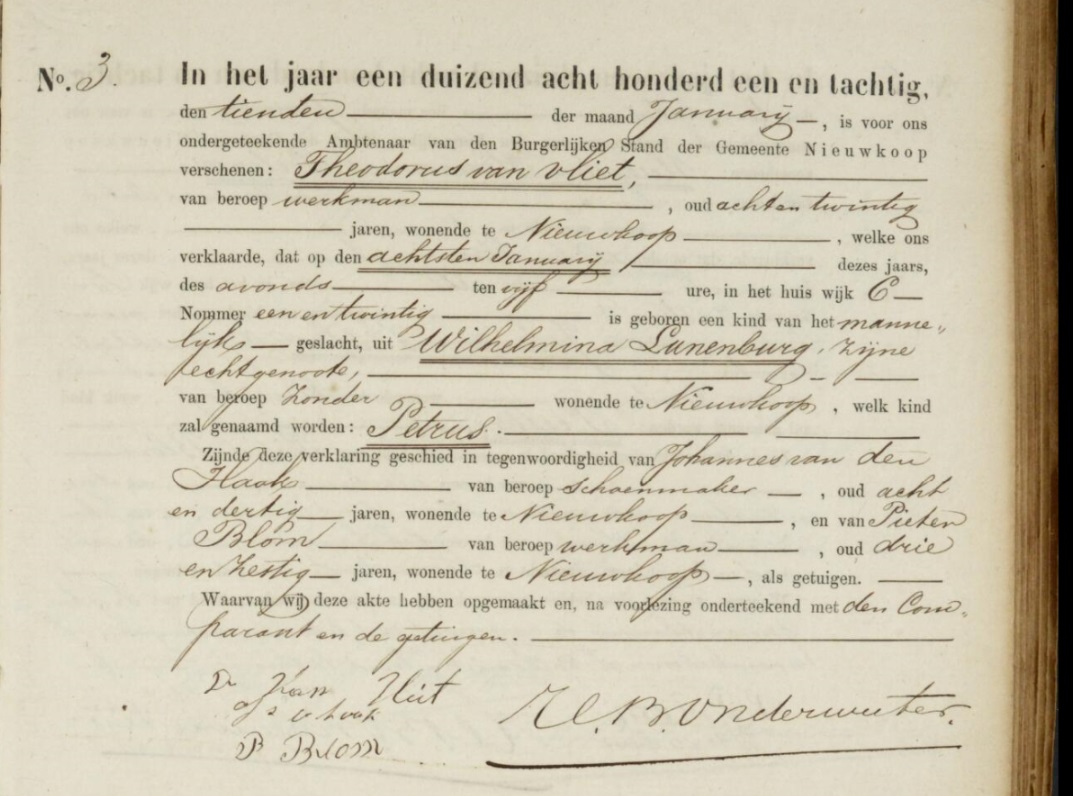 No. 3. In het jaar een duizend acht honderd een en tachtig,
den tienden der maand January, is voor ons
ondergeteekende Ambtenaar van den Burgerlijken Stand der Gemeente Nieuwkoop
verschenen: Theodorus van Vliet,
van beroep werkman, oud acht en twintig
jaren, wonende te Nieuwkoop, welke ons
verklaarde, dat op den achtsten January dezes jaars,
des avonds ten vijf ure, in het huis wijk C
Nommer een en twintig is geboren een kind van het manne„
lijk geslacht, uit Wilhelmina Lunenburg, zijne
echtgenoote,
van beroep zonder wonende te Nieuwkoop, welk kind
zal genaamd worden: Petrus.
Zijnde deze verklaring geschied in tegenwoordigheid van Johannes van den
Haak van beroep schoenmaker, oud acht
en dertig jaren, wonende te Nieuwkoop, en van Pieter
Blom van beroep werkman, oud drie
en zestig jaren, wonende te Nieuwkoop, als getuigen.
Waarvan wij deze akte hebben opgemaakt en, na voorlezing onderteekend met den Com„
parant en de getuigen.
B Blom
Onderwater.